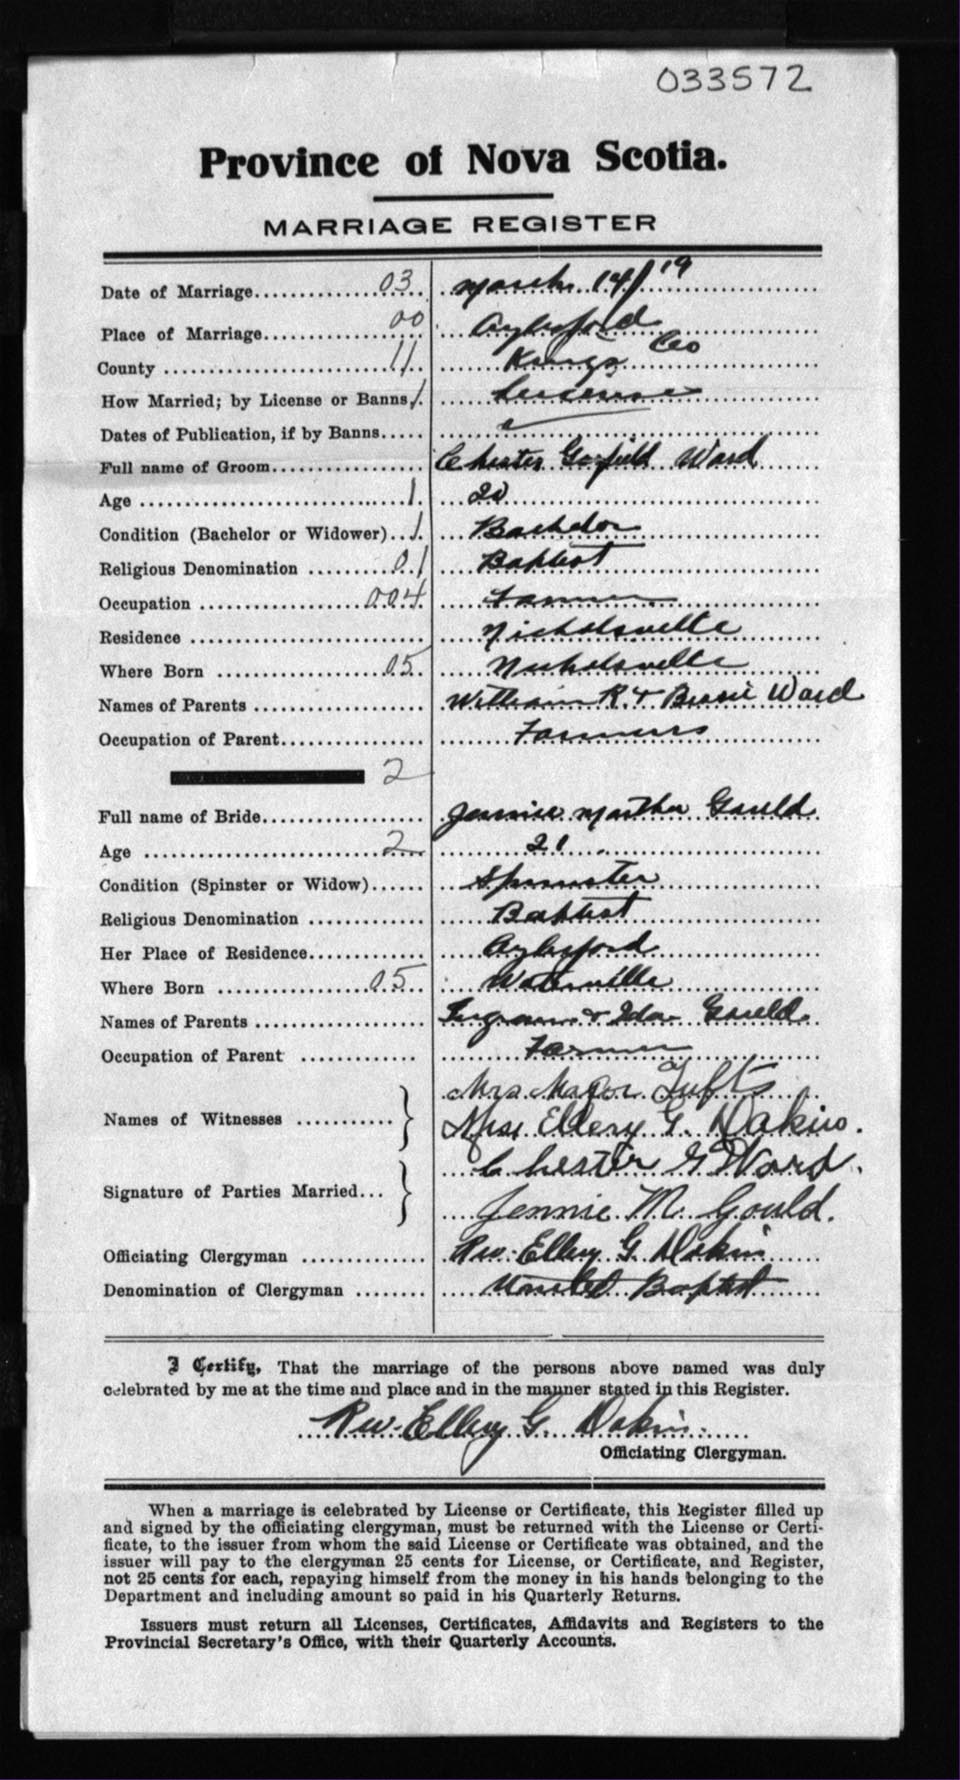 033572
Province of Nova Scotia.
MARRIAGE REGISTER
Date of Marriage 03 March 14/19
Place of Marriage 00 Aylesford
County 11 Kings Co
How Married; by License or Banns 1 License
Dates of Publication, if by Banns
Full name of Groom Chester Garfield Ward
Age 1 20
Condition (Bachelor or Widower) 1 Bachelor
Religious Denomination 01 Baptist
Occupation 004 Farmer
Residence Nicholsville
Where Born 05 Nicholsville
Names of Parents William R. & Bessie Ward
Occupation of Parent Farmers
2
Full name of Bride Jennie Martha Gould
Age 2 21
Condition (Spinster or Widow) Spinster
Religious Denomination Baptist
Her Place of Residence Aylesford
Where Born 05 Waterville
Names of Parents Ingram & Ida Gould
Occupation of Parent Farmer
Names of Witnesses Mrs Major Tufts
Mrs Ellery G. Dakin.
Signature of Parties Married Chester G Ward.
Jennie M. Gould.
Officiating Clergyman Rev. Ellery G. Dakin
Denomination of Clergyman United Baptist
I Certify, That the marriage of the persons above named was duly
celebrated by me at the time and place and in the manner stated in this Register.
Rev. Ellery G. Dakin.
Officiating Clergyman.
When a marriage is celebrated by License or Certificate, this Register filled up
and signed by the officiating clergyman, must be returned with the License or Certi-
ficate, to the issuer from whom the said License or Certificate was obtained, and the
issuer will pay to the clergyman 25 cents for License, or Certificate, and Register,
not 25 cents for each, repaying himself from the money in his hands belonging to the
Department and including amount so paid in his Quarterly Returns.
Issuers must return all Licenses, Certificates, Affidavits and Registers to the
Provincial Secretary's Office, with their Quarterly Accounts.